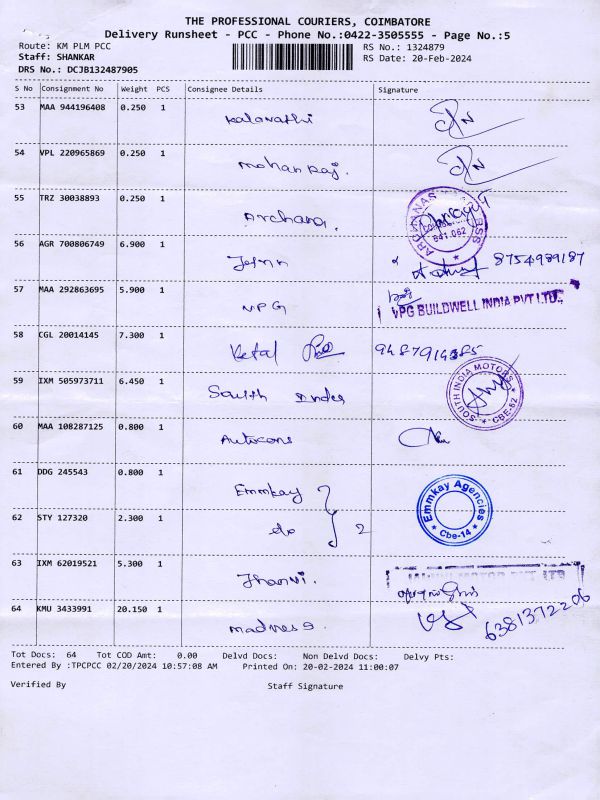 THE PROFESSIONAL COURIERS, COIMBATORE
Delivery Runsheet - PCC - Phone No.:0422-3505555 - Page No.:5
Route: KM PLM PCC RS No.: 1324879
Staff: SHANKAR RS Date: 20-Feb-2024
DRS No.: DCJB132487905
S No Consignment No Weight PCS Consignee Details Signature
53 MAA 944196408 0.250 1 Kalavathi
54 VPL 220965869 0.250 1 Mohan Raj.
55 TRZ 30038893 0.250 1 Archana. 641 062
56 AGR 700806749 6.900 1 8754989187
57 MAA 292863695 5.900 1 VPG VPG BUILDWELL INDIA PVT LTD.,
58 CGL 20014145 7.300 1
59 IXM 505973711 6.450 1 South India SOUTH INDIA MOTORS CBE-62
60 MAA 108287125 0.800 1 Autocons
61 DDG 245543 0.800 1 Emmkay Emmkay Agencies Cbe-14
62 STY 127320 2.300 1 do 2
63 IXM 62019521 5.300 1 Jhanvi. MOTOR PVT LTD
64 KMU 3433991 20.150 1 6381372206
Tot Docs: 64 Tot COD Amt: 0.00 Delvd Docs: Non Delvd Docs: Delvy Pts:
Entered By :TPCPCC 02/20/2024 10:57:08 AM Printed On: 20-02-2024 11:00:07
Verified By Staff Signature